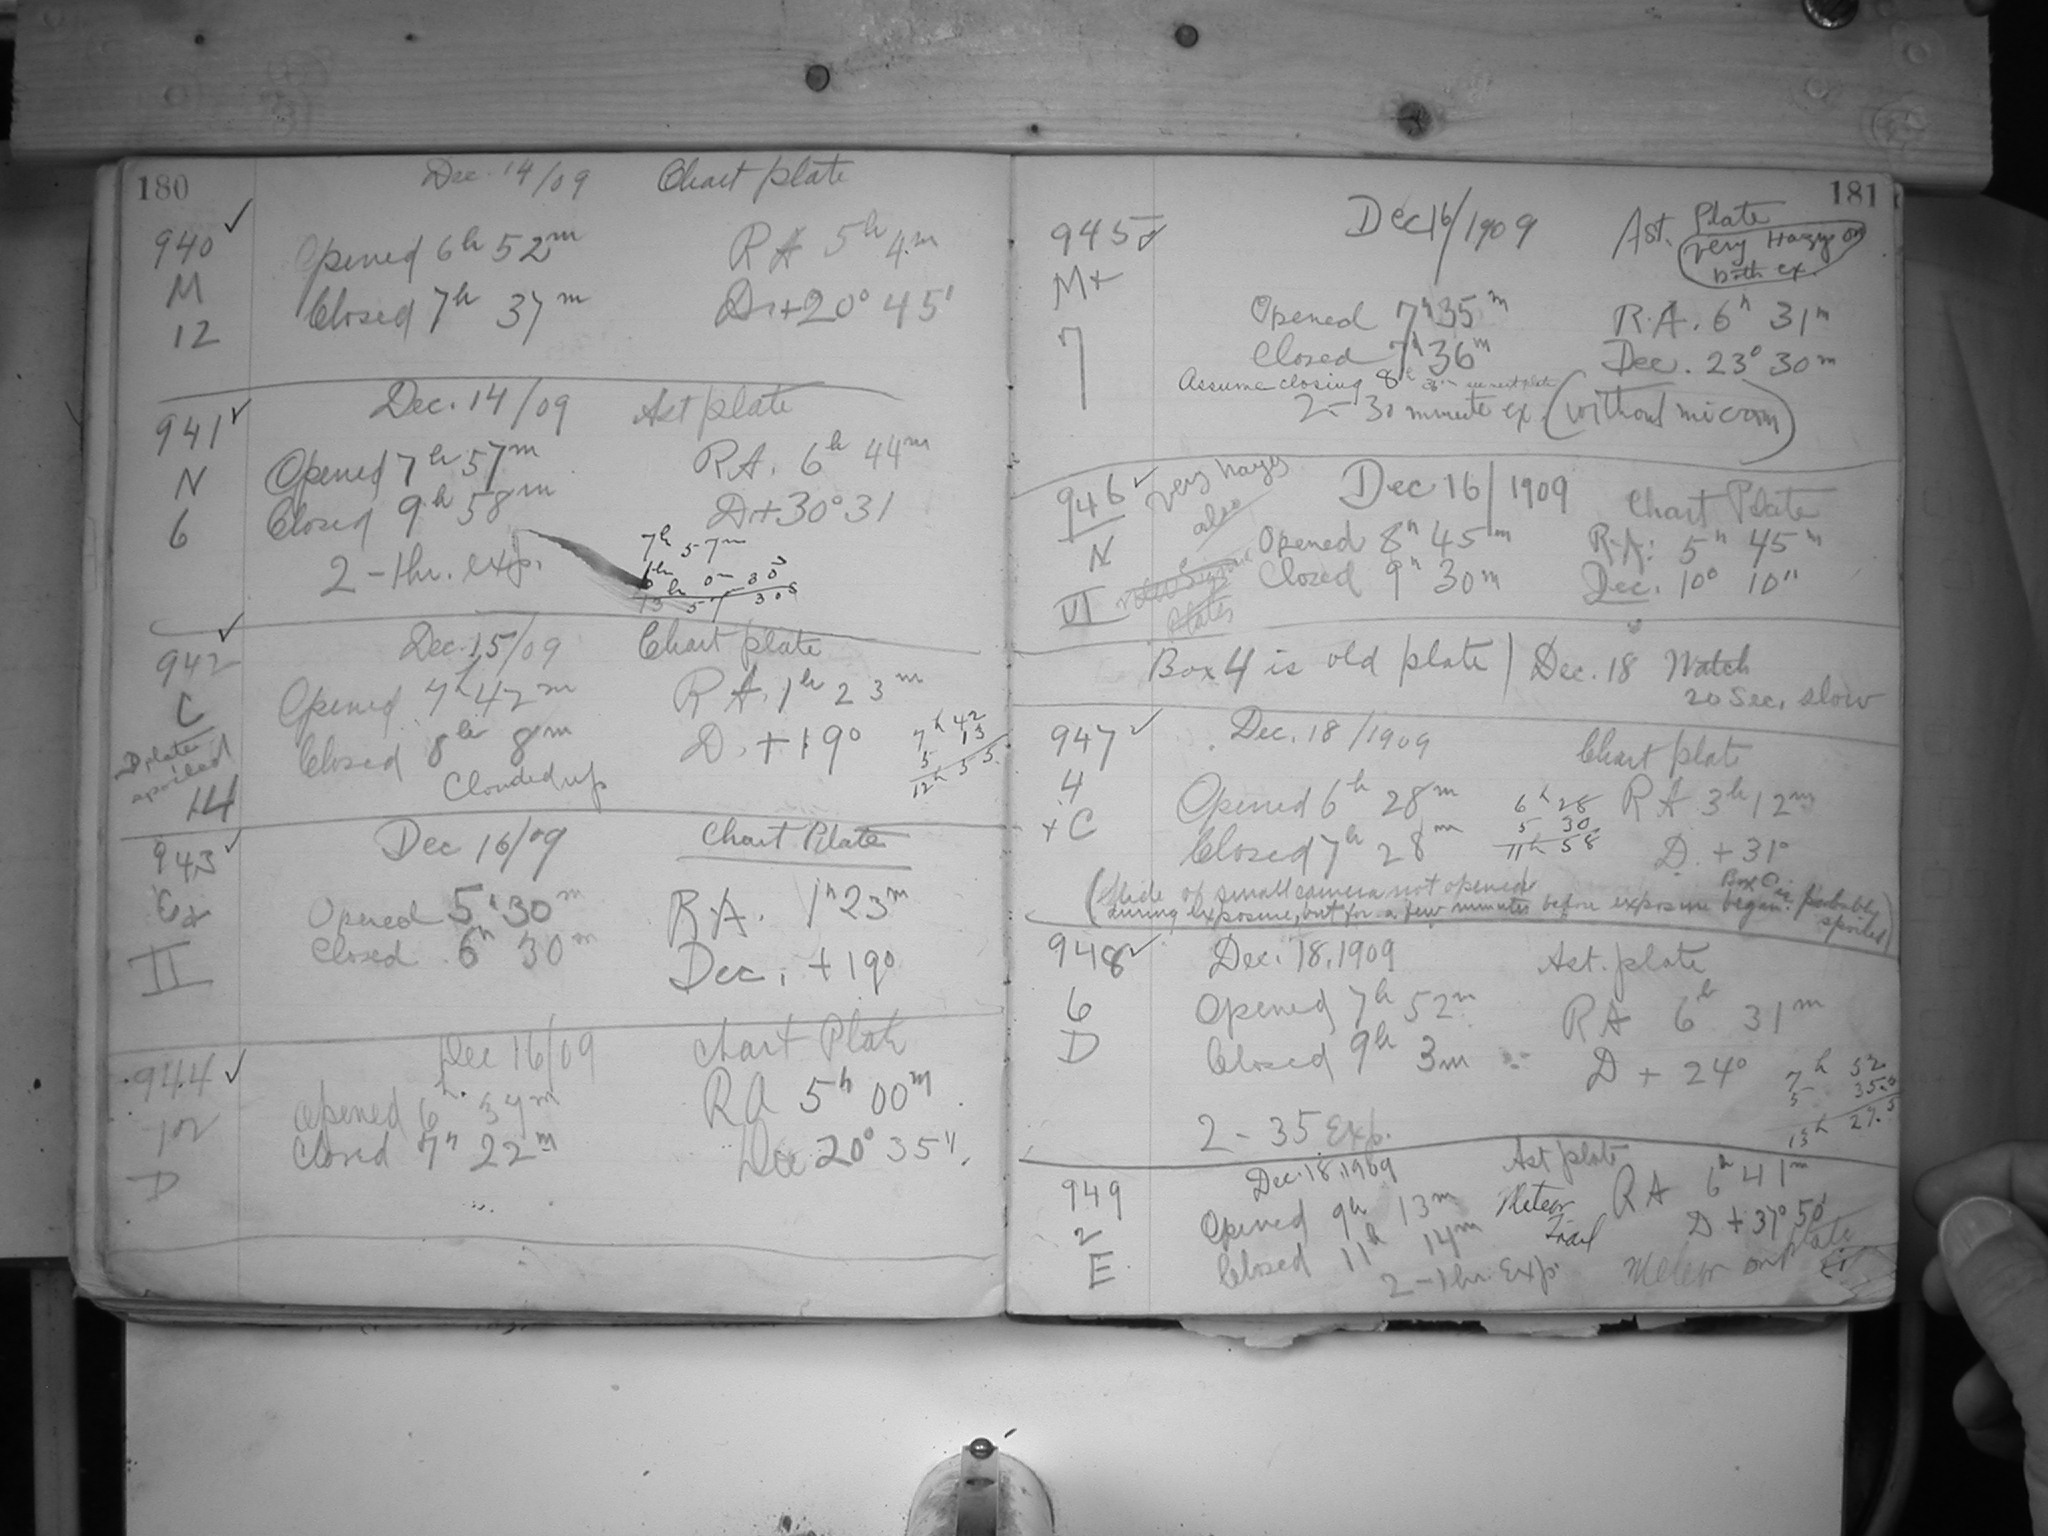 180
Dec. 14/09 Chart plate
940 ✓
M
12
Opened 6h 52m RA 5h 4m
Closed 7h 37m D.+20° 45'
Dec. 14/09 Ast plate
941 ✓
N
6
Opened 7h 57m RA. 6h 44m
Closed 9h 58m D.+30° 31
2 - 1hr. exp.
7h 57m
6h 0m 30s
13h 57 30s
Dec. 15/09 Chart plate
942 ✓
C
D plate
spoiled
14
Opened 7h 42m RA. 1h 23m
Closed 8h 8m D. +19°
Clouded up
7h 42
5 13
12h 55
Dec 16/09 Chart Plate
943 ✓
Ex
II
Opened 5h 30m RA. 1h 23m
Closed 6h 30m Dec. +19°
Dec 16/09 Chart Plate
944 ✓
12
D
Opened 6h 37m RA 5h 00m
Closed 7h 22m Dec 20° 35''
181
945 ✓
M+
7
Dec 16/1909 Ast. Plate
Very Hazy on
both ex.
Opened 7h 35m R.A. 6h 31m
Closed 7h 36m Dec. 23° 30m
Assume closing 8h 36m see next plate
2 - 30 minute ex. (without microm)
946 ✓ Very hazy
also
N
VI
Dec 16/1909 Chart Plate
Opened 8h 45m R.A: 5h 45m
Closed 9h 30m Dec. 10° 10''
plates
Box 4 is old plate | Dec. 18 Watch
20 Sec. slow
947 ✓
4
+C
Dec. 18/1909 Chart plate
Opened 6h 28m RA 3h 12m
Closed 7h 28m D. +31°
6h 28
5 30
11h 58
(Slide of small camera not opened
during exposure, but for a few minutes before exposure began. Box C is probably
spoiled)
948 ✓
6
D
Dec. 18, 1909 Ast. plate
Opened 7h 52m RA 6h 31m
Closed 9h 3m D + 24°
2 - 35 Exp.
7h 52
5 35.
13h 27.5
949
2
E
Dec. 18, 1909 Ast plate
Opened 9h 13m Meteor Trail RA 6h 41m
Closed 11h 14m D +37° 50'
2 - 1hr. Exp. Meteor on plate